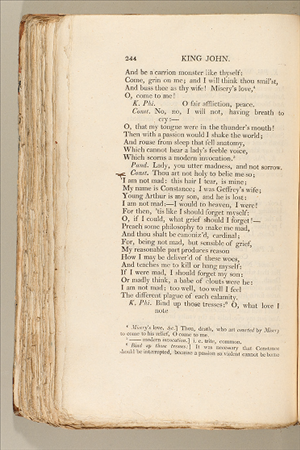 244 KING JOHN.
And be a carrion monster like thyself:
Come, grin on me; and I will think thou smil'st,
And buss thee as thy wife! Misery's love,⁴
O, come to me!
K. Phi. O fair affliction, peace.
Const. No, no, I will not, having breath to
cry:—
O, that my tongue were in the thunder's mouth!
Then with a passion would I shake the world;
And rouse from sleep that fell anatomy,
Which cannot hear a lady's feeble voice,
Which scorns a modern invocation.⁵
Pand. Lady, you utter madness, and not sorrow.
Const. Thou art not holy to belie me so;
I am not mad: this hair I tear, is mine;
My name is Constance; I was Geffrey's wife;
Young Arthur is my son, and he is lost:
I am not mad;—I would to heaven, I were!
For then, 'tis like I should forget myself:
O, if I could, what grief should I forget!—
Preach some philosophy to make me mad,
And thou shalt be canoniz'd, cardinal;
For, being not mad, but sensible of grief,
My reasonable part produces reason
How I may be deliver'd of these woes,
And teaches me to kill or hang myself:
If I were mad, I should forget my son;
Or madly think, a babe of clouts were he:
I am not mad; too well, too well I feel
The different plague of each calamity.
K. Phi. Bind up those tresses:⁶ O, what love I
note
⁴ Misery's love, &c.] Thou, death, who art courted by Misery
to come to his relief, O come to me.
⁵ —— modern invocation.] i. e. trite, common.
⁶ Bind up those tresses:] It was necessary that Constance
should be interrupted, because a passion so violent cannot be borne